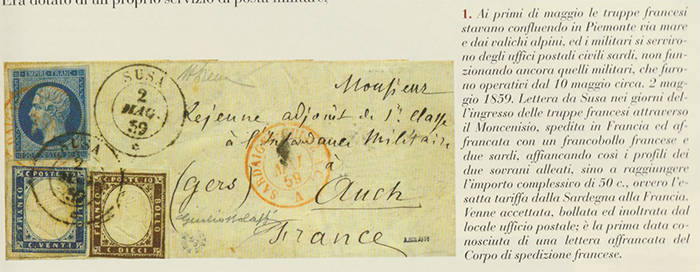 Era dotato di un proprio servizio di posta militare,
EMPIRE FRANC
SUSA
2
MAG
59
Monsieur
Lejeune adjoint de 1re classe
à l'Intendance Militaire
à
(gers) Auch
France
SUSA
FRANCO POSTE BOLLO
C. VENTI
FRANCO POSTE BOLLO
C. DIECI
SARDAIGNE
59
1. Ai primi di maggio le truppe francesi
stavano confluendo in Piemonte via mare
e dai valichi alpini, ed i militari si serviro-
no degli uffici postali civili sardi, non fun-
zionando ancora quelli militari, che furo-
no operativi dal 10 maggio circa. 2 mag-
gio 1859. Lettera da Susa nei giorni del-
l'ingresso delle truppe francesi attraverso
il Moncenisio, spedita in Francia ed af-
francata con un francobollo francese e
due sardi, affiancando così i profili dei
due sorrani alleati, sino a raggiungere
l'importo complessivo di 50 c., ovvero l'e-
satta tariffa dalla Sardegna alla Francia.
Venne accettata, bollata ed inoltrata dal
locale ufficio postale; è la prima data co-
nosciuta di una lettera affrancata del
Corpo di spedizione francese.